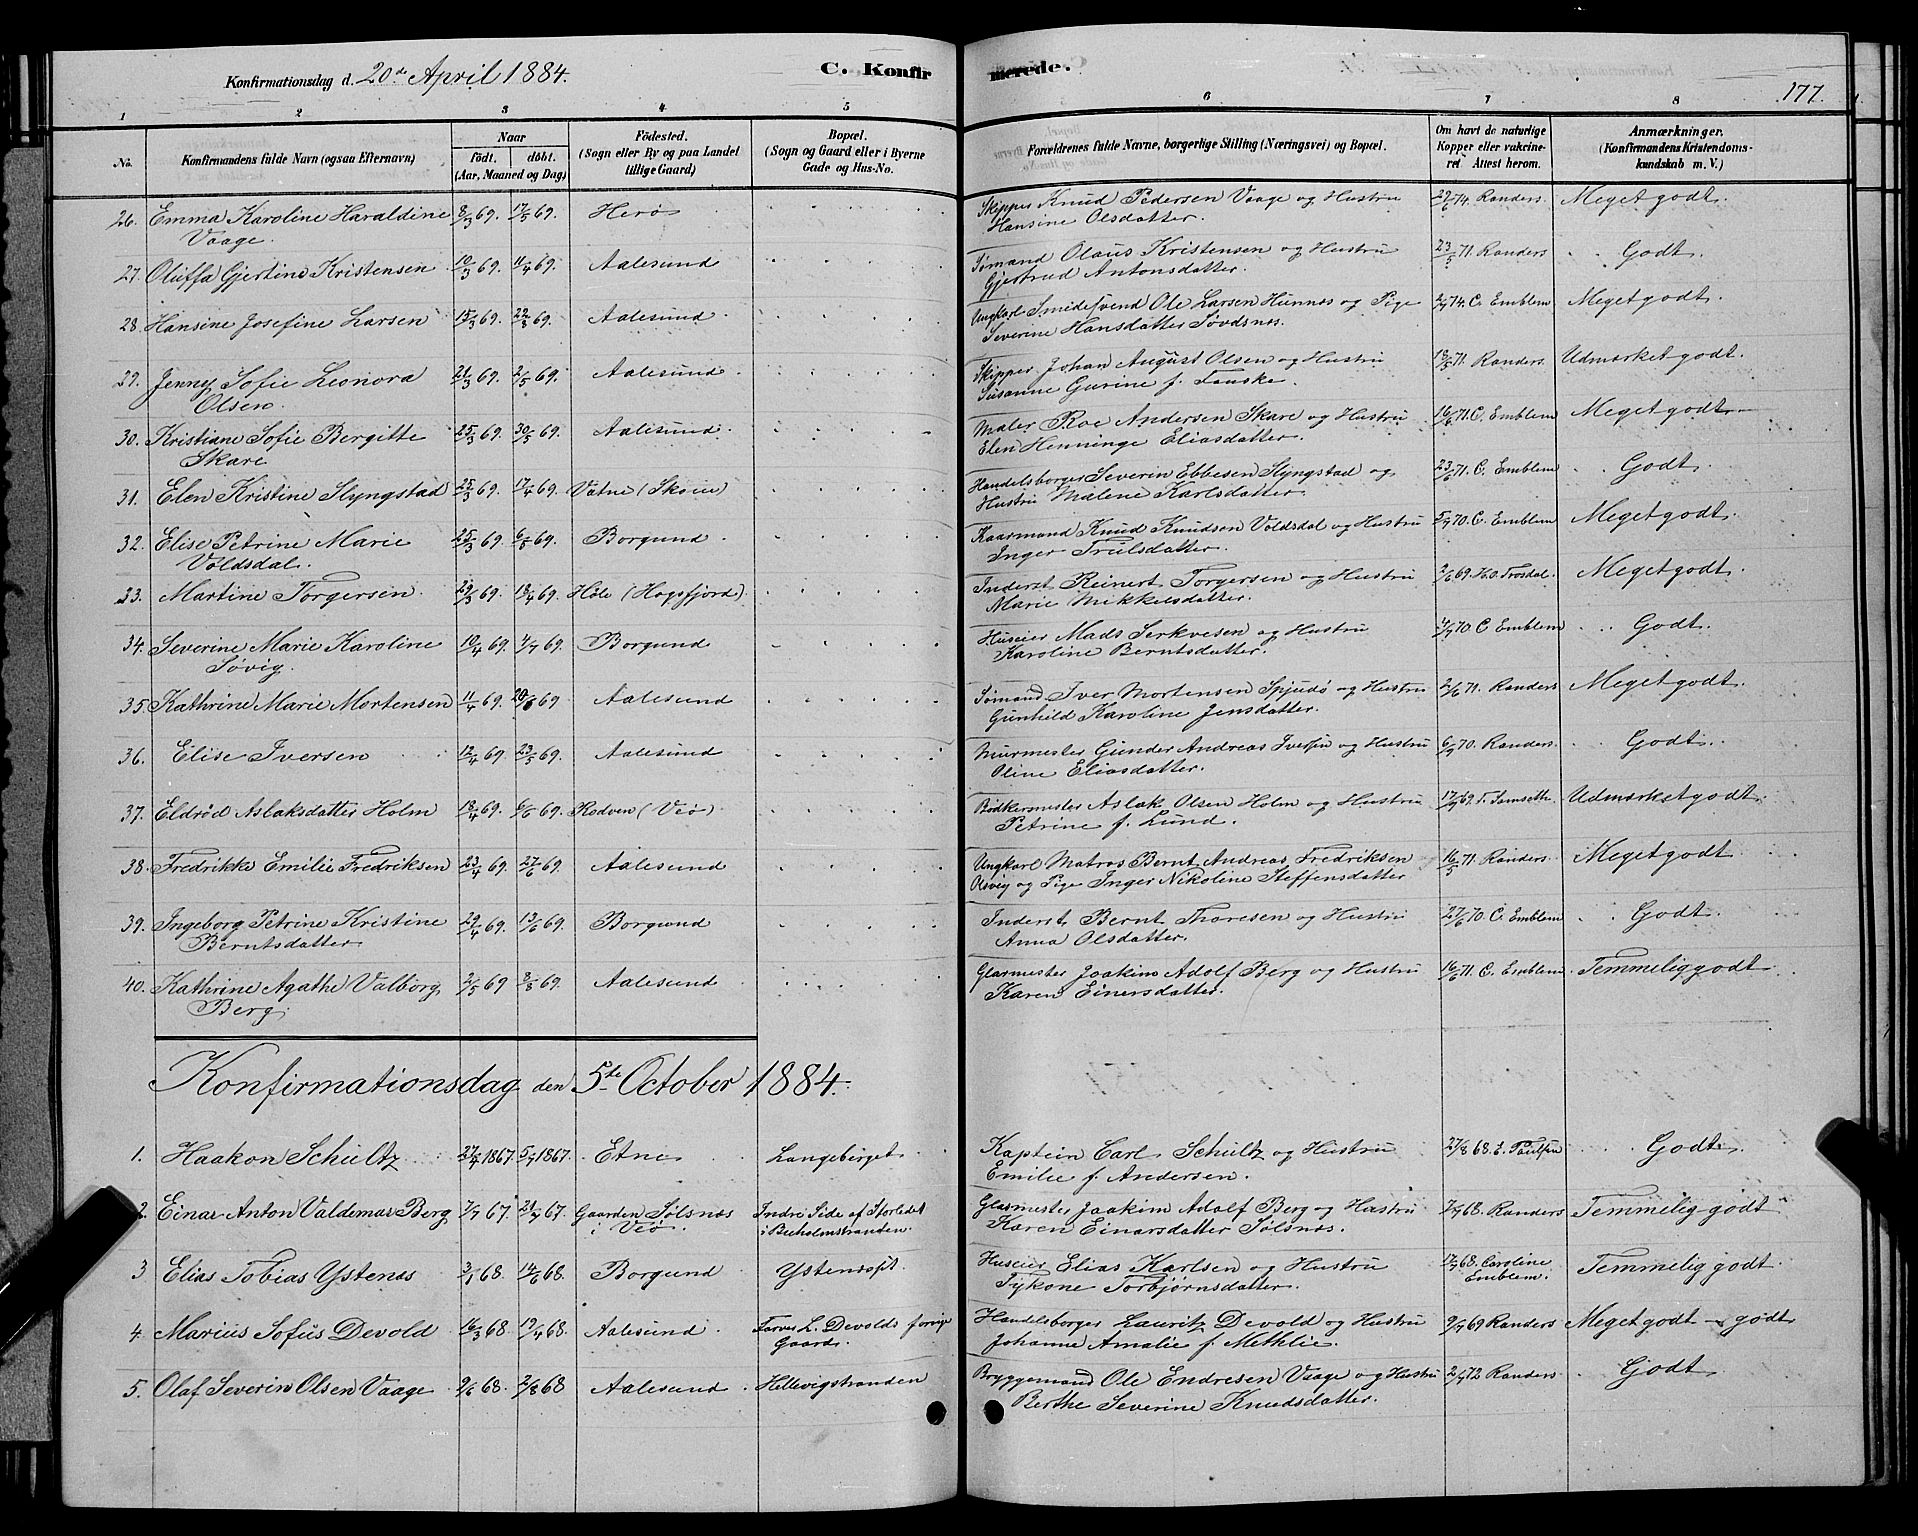 Konfirmationsdag d. 20de April 1884.
C. Konfirmerede.
177.
1 2 3 4 5 6 7 8
No. Konfirmandens fulde Navn (ogsaa Efternavn) Naar født. døbt. (Aar, Maaned og Dag) Fødested. (Sogn eller By og paa Landet tillige Gaard) Bopæl. (Sogn og Gaard eller i Byerne Gade og Hus-No. Forældrenes fulde Navne, borgerlige Stilling (Næringsvei) og Bopæl. Om havt de naturlige Kopper eller vakcineret Attest herom. Anmærkninger. (Konfirmandens Kristendomskundskab m. V.)
26. Emma Karoline Haraldine 8/3 69. 17/5 69. Herø Skipper Knud Pedersen Vaage og Hustru 22/6 74. Randers. Meget godt.
Vaage. Hansine Olsdatter.
27. Oluffa Gjertine Kristensen 10/3 69. 11/4 69. Aalesund Sømand Olaus Kristensen og Hustru 23/5 71. Randers Godt.
Gjertrud Antonsdatter.
28. Hansine Josefine Larsen 15/3 69. 22/3 69. Aalesund Ungkarl Smedesvend Ole Larsen Hunnes og Pige 2/7 74. C. Emblem Meget godt.
Severine Hansdatter Søvdsnes.
29. Jenny Sofie Leonora 21/3 69. 2/5 69. Aalesund Skipper Johan August Olsen og Hustru 18/5 71. Randers. Udmærket godt.
Olsen. Susanne Gurine f. Fauske.
30. Kristiane Sofie Bergitte 25/3 69. 30/5 69. Aalesund Maler Roe Andersen Skare og Hustru 16/6 71. C. Emblem Meget godt
Skare Elen Henninge Eliasdatter.
31. Elen Kristine Slyngstad 25/3 69. 17/4 69. Vatne (Skoue) Handelsborger Severin Ebbesen Slyngstad og 23/6 71. C. Emblem Godt.
Hustru Malene Karlsdatter.
32. Elise Petrine Marie 25/3 69. 6/5 69. Borgund Kaarmand Knud Knudsen Voldsdal og Hustru 5/7 70. C. Emblem Meget godt.
Voldsdal. Inger Trulsdatter.
33. Martine Torgersen 29/3 69. 18/4 69. Høle (Høgsfjord) Inderst Reinert Torgersen og Hustru 2/6 69. H.O. Frosdal. Meget godt.
Marie Mikkelsdatter.
34. Severine Marie Karoline 10/4 69. 4/7 69. Borgund Huseier Mads Serkvesen og Hustru 4/7 70 C Emblem Godt.
Søvig. Karoline Berntsdatter.
35. Kathrine Marie Mortensen 11/4 69. 20/6 69 Aalesund Sømand Iver Mortensen Spjudø og Hustru 2/6 71. Randers Meget godt.
Gunhild Karoline Jensdatter.
36. Elise Iversen 12/4 69. 23/5 69. Aalesund Murmester Gunder Andreas Iversen og Hustru 6/9 70. Randers. Godt.
Oline Eliasdatter.
37. Eldrød Aslaksdatter Holm 18/4 69. 6/6 69. Rødven (Veø) Bødkermester Aslak Olsen Holm og Hustru 17/9 69. T. Tomseth. Udmærket godt.
Petrine f. Lund.
38. Fredrikke Emilie Fredriksen 23/4 69. 27/6 69. Aalesund Ungkarl Matros Bernt Andreas Fredriksen 16/5 71. Randers. Meget godt
Olsvig og Pige Inger Nikoline Steffensdatter
39. Ingeborg Petrine Kristine 29/4 69. 13/6 69. Borgund Inderst Bernt Thoresen og Hustru 27/6 70 C. Emblem Godt.
Berntsdatter Anna Olsdatter.
40. Kathrine Agathe Valborg 2/5 69 8/8 69. Aalesund Glarmester Joakim Adolf Berg og Hustru 16/6 71. C. Emblem. Temmelig godt
Berg. Karen Einersdatter.
Konfirmationsdag den 5te October 1884.
1. Haakon Schultz 27/4 1867. 5/7 1867. Etne Langeberget Kaptein Carl Schultz og Hustru 27/8 68. E. Poulsen Godt.
Emilie f. Andersen.
2. Einar Anton Valdemar Berg 7/7 67. 21/7 67. Gaarden Sølsnæs Indre Side af Storledet Glarmester Joakim Adolf Berg og Hustru 7/9 68. Randers Temmelig godt
i Veø. i Buholmstranden. Karen Einarsdatter Sølsnæs.
3 Elias Tobias Ystenæs 3/1 68. 14/6 68. Borgund Ystenæset Huseier Elias Karlsen og Hustru 17/9 68. Caroline Temmelig godt.
Sykone Torbjørnsdatter. Emblem.
4. Marius Sofus Devold 16/3 68. 19/4 68. Aalesund Farver L. Devolds forrige Handelsborger Lauritz Devold og Hustru 9/7 69 Randers Meget godt - godt
Gaard. Johanne Amalie f. Methlie.
5. Olaf Severin Olsen Vaage 9/6 68. 2/8 68 Aalesund Hellevigstranden Bryggemand Ole Endresen Vaage og Hustru 2/7 72 Randers Godt
Berthe Severine Knudsdatter.